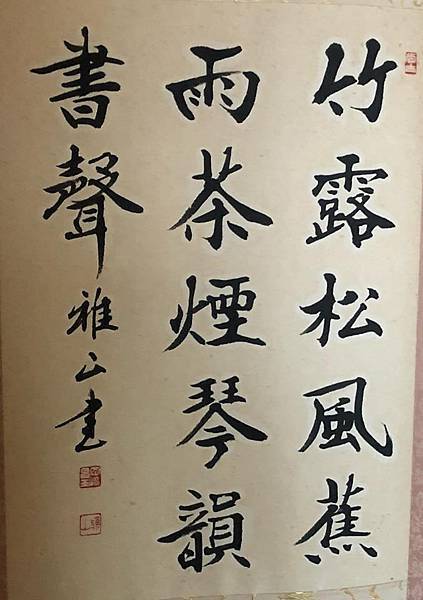 竹露松風蕉
雨茶煙琴韻
書聲 雅山書